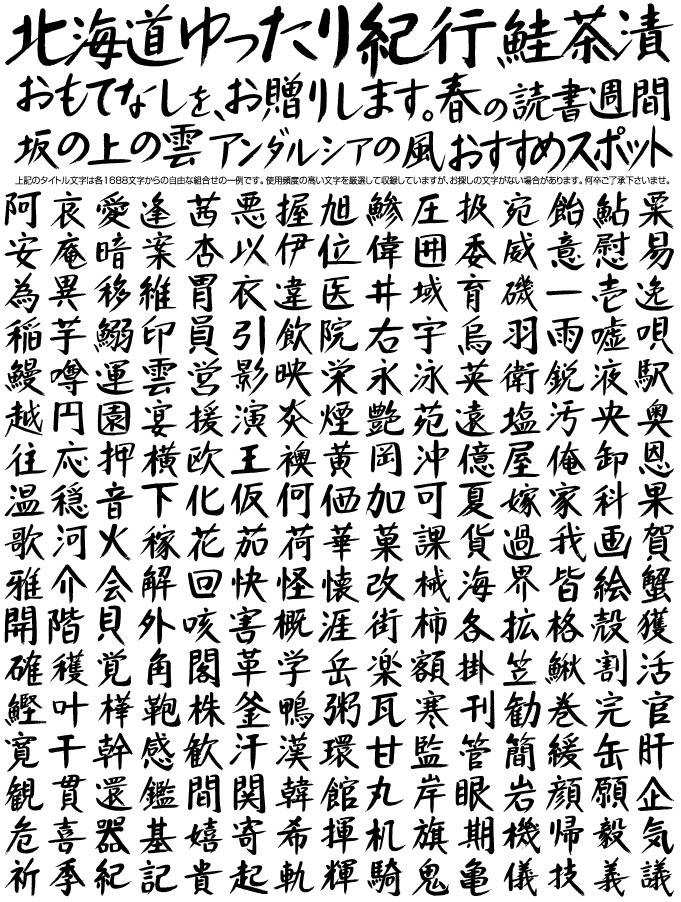 北海道ゆったり紀行鮭茶漬
おもてなしを、お贈りします。春の読書週間
坂の上の雲アンダルシアの風おすすめスポット
上記のタイトル文字は各1688文字からの自由な組合せの一例です。使用頻度の高い文字を厳選して収録していますが、お探しの文字がない場合があります。何卒ご了承下さいませ。
阿哀愛逢茜悪握旭鯵圧扱宛飴鮎粟
安庵暗案杏以伊位偉囲委威意慰易
為異移維胃衣違医井域育磯一壱逸
稲芋鰯印員引飲院右宇烏羽雨嘘唄
鰻噂運雲営影映栄永泳英衛鋭液駅
越円園宴援演炎煙艶苑遠塩汚央奥
往応押横欧王襖黄岡沖億屋俺卸恩
温穏音下化仮何価加可夏嫁家科果
歌河火稼花茄荷華菓課貨過我画賀
雅介会解回快怪懐改械海界皆絵蟹
開階貝外咳害概涯街柿各拡格殻獲
確穫覚角閣革学岳楽額掛笠鰍割活
鰹叶樺鞄株釜鴨粥瓦寒刊勧巻完官
寛干幹感歓汗漢環甘監管簡緩缶肝
観貫還鑑間関韓館丸岸眼岩顔願企
危喜器基嬉寄希揮机旗期機帰毅気
祈季紀記貴起軌輝騎鬼亀儀技義議